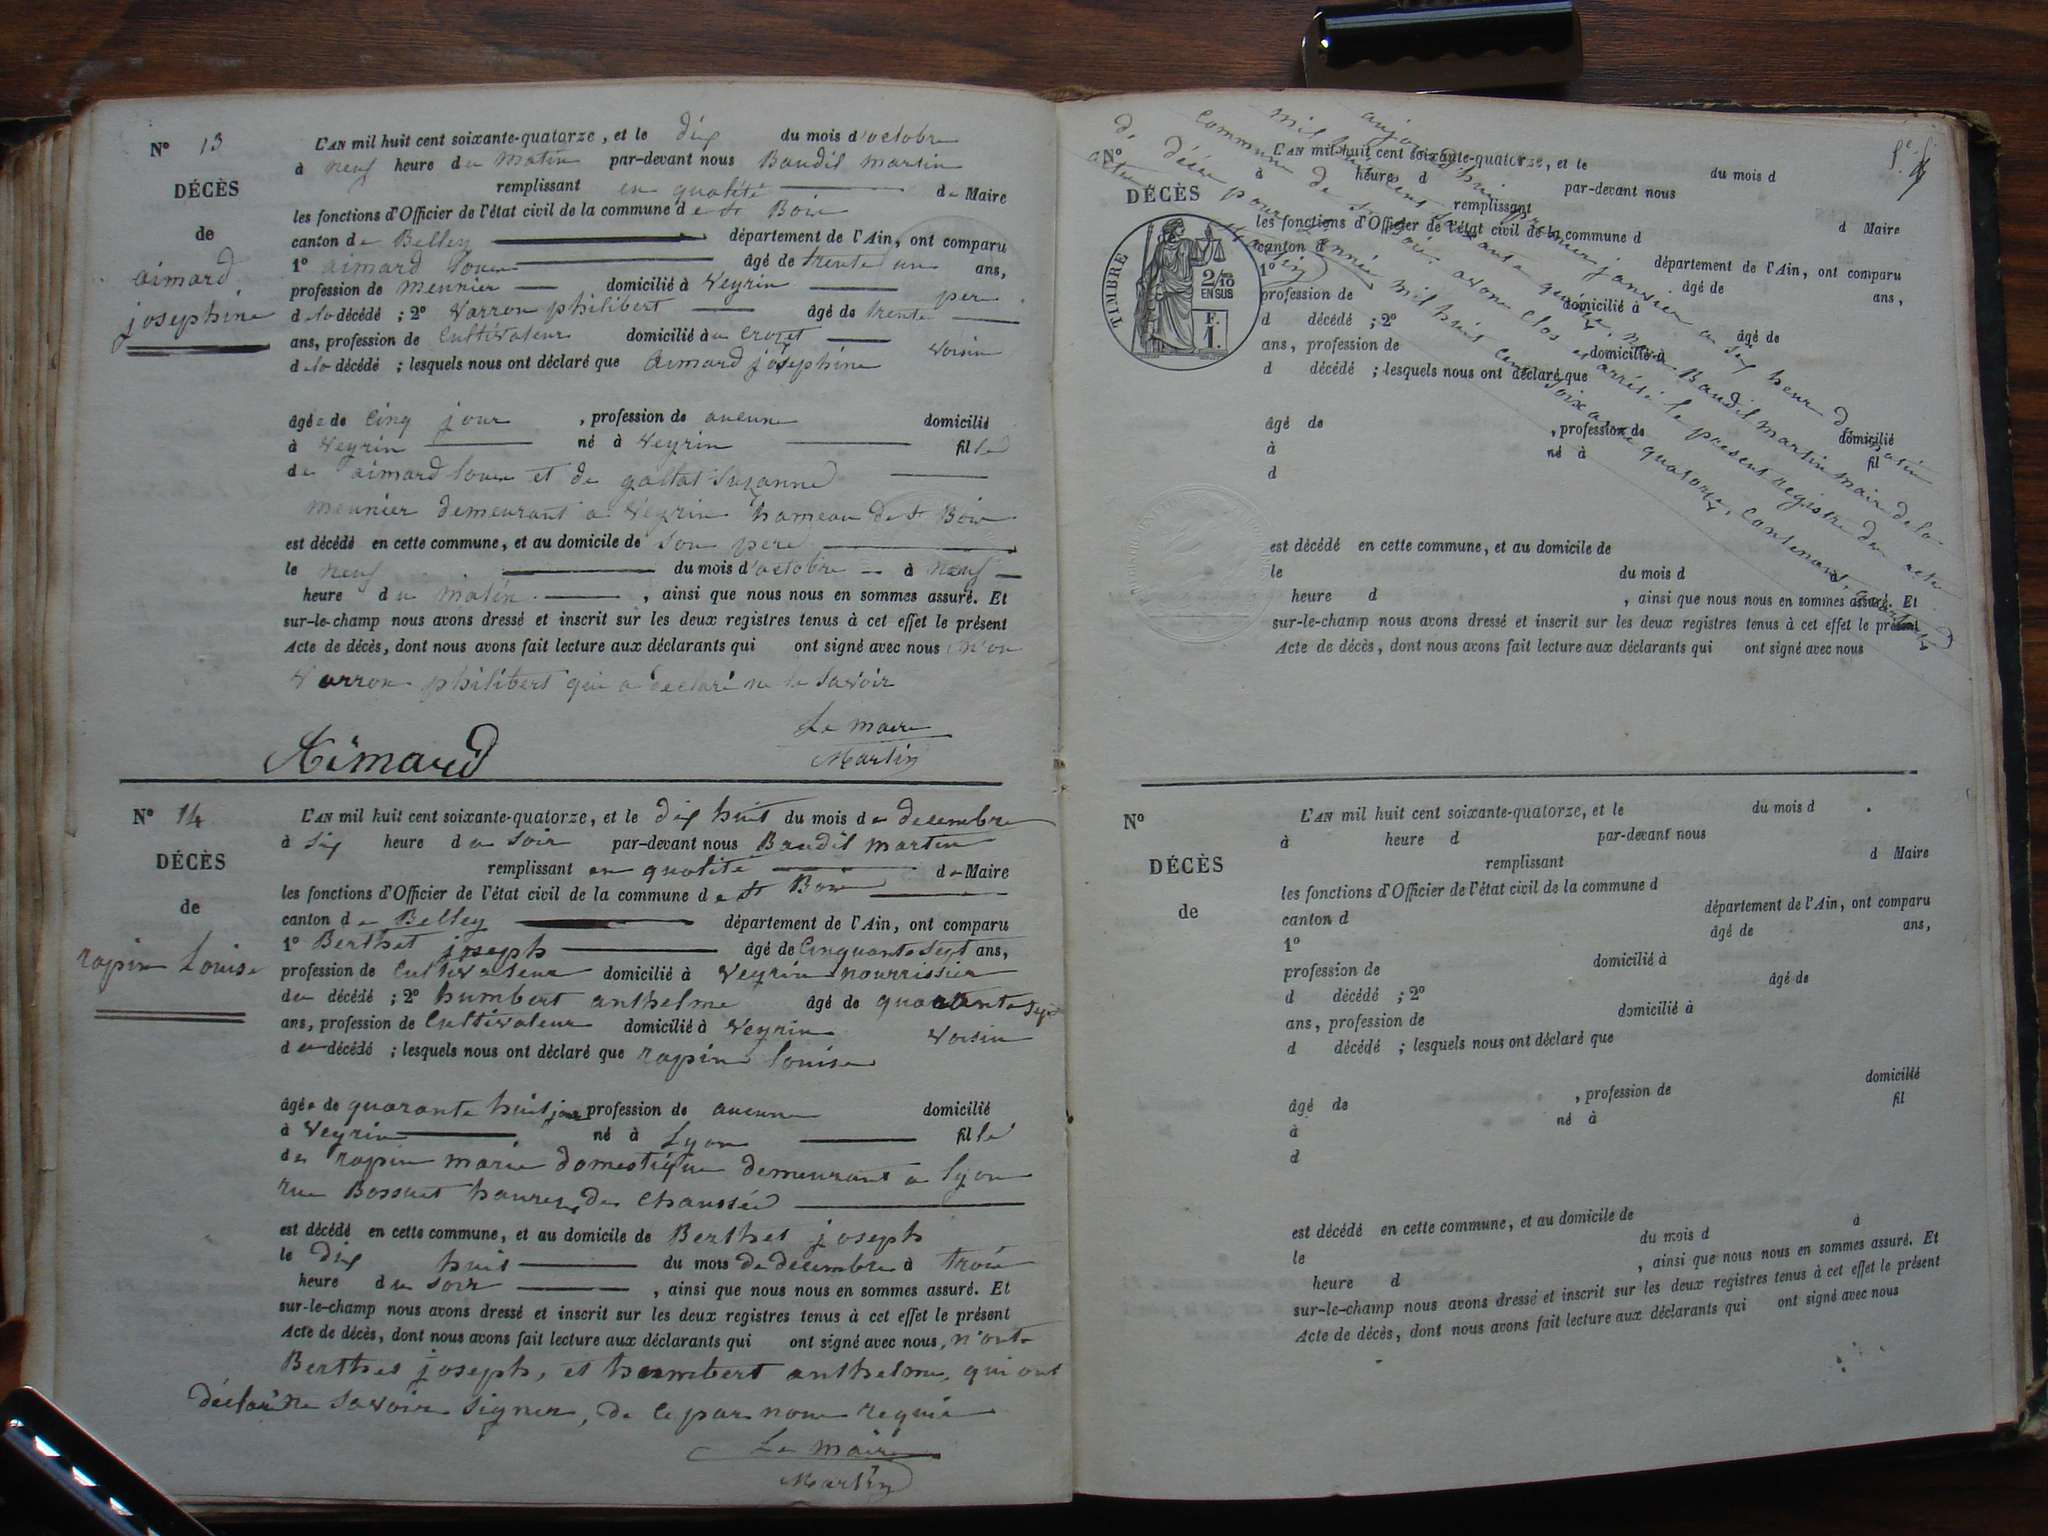 N° 13
DÉCÈS
de
aimard
josephine
L'AN mil huit cent soixante-quatorze, et le dix du mois d'octobre
à neuf heure du matin par-devant nous Baudil martin
remplissant en qualité de Maire
les fonctions d'Officier de l'état civil de la commune de St Boir
canton de Belley département de l'Ain, ont comparu
1° aimard âgé de trente un ans,
profession de meunier domicilié à Veyrin père
de la décédé ; 2° Varron philibert âgé de trente
ans, profession de Cultivateur domicilié à au Crozet voisin
de la décédé ; lesquels nous ont déclaré que Aimard josephine
âgée de Cinq jour , profession de aucune domicilié
à Veyrin né à Veyrin fille
de aimard et de gallat Suzanne
meunier demeurant a Veyrin hameau de St Boir
est décédé en cette commune, et au domicile de son pere
le neuf du mois d'octobre à neuf
heure du matin , ainsi que nous nous en sommes assuré. Et
sur-le-champ nous avons dressé et inscrit sur les deux registres tenus à cet effet le présent
Acte de décès, dont nous avons fait lecture aux déclarants qui ont signé avec nous non
Varron philibert qui a déclaré ne le savoir
Le maire
Aimard Martin
N° 14
DÉCÈS
de
rapin Louise
L'AN mil huit cent soixante-quatorze, et le dix huit du mois de decembre
à six heure du soir par-devant nous Baudil martin
remplissant en qualité de Maire
les fonctions d'Officier de l'état civil de la commune de St Boir
canton de Belley département de l'Ain, ont comparu
1° Berthet joseph âgé de Cinquante Sept ans,
profession de Cultivateur domicilié à Veyrin nourrissier
du décédé ; 2° humbert anthelme âgé de quarante sept
ans, profession de Cultivateur domicilié à Veyrin voisin
du décédé ; lesquels nous ont déclaré que rapin louise
âgée de quarante huit jour profession de aucune domicilié
à Veyrin né à Lyon fille
de rapin marie domestique demeurant a Lyon
rue Bossuet de Chaussée
est décédé en cette commune, et au domicile de Berthet joseph
le dix huit du mois de decembre à trois
heure du soir , ainsi que nous nous en sommes assuré. Et
sur-le-champ nous avons dressé et inscrit sur les deux registres tenus à cet effet le présent
Acte de décès, dont nous avons fait lecture aux déclarants qui ont signé avec nous, non
Berthet joseph, et humbert anthelme, qui ont
déclaré ne savoir signer, de ce par nous requis
Le maire
Martin
aujourd'hui premier janvier a dix heure du matin
mil huit cent soixante quinze, nous Baudil martin maire de la
commune de St Boir avons clos et arrêté le present registre des acte
de décès pour l'année mil huit cent soixante quatorze, contenant quatorze
actes Martin
N°
DÉCÈS
TIMBRE
2/10
EN SUS
F.
1.
L'AN mil huit cent soixante-quatorze, et le du mois d
à heure d par-devant nous
remplissant d Maire
les fonctions d'Officier de l'état civil de la commune d
canton d département de l'Ain, ont comparu
1° âgé de ans,
profession de domicilié à
d décédé ; 2° âgé de
ans, profession de domicilié à
d décédé ; lesquels nous ont déclaré que
âgé de , profession de domicilié
à né à fil
d
est décédé en cette commune, et au domicile de
le du mois d à
heure d , ainsi que nous nous en sommes assuré. Et
sur-le-champ nous avons dressé et inscrit sur les deux registres tenus à cet effet le présent
Acte de décès, dont nous avons fait lecture aux déclarants qui ont signé avec nous
N°
DÉCÈS
de
L'AN mil huit cent soixante-quatorze, et le du mois d
à heure d par-devant nous
remplissant d Maire
les fonctions d'Officier de l'état civil de la commune d
canton d département de l'Ain, ont comparu
1° âgé de ans,
profession de domicilié à
d décédé ; 2° âgé de
ans, profession de domicilié à
d décédé ; lesquels nous ont déclaré que
âgé de , profession de domicilié
à né à fil
d
est décédé en cette commune, et au domicile de
le du mois d à
heure d , ainsi que nous nous en sommes assuré. Et
sur-le-champ nous avons dressé et inscrit sur les deux registres tenus à cet effet le présent
Acte de décès, dont nous avons fait lecture aux déclarants qui ont signé avec nous